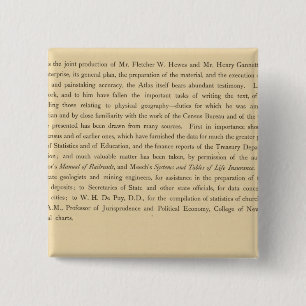 s the joint production of Mr. Fletcher W. Hewes and Mr. Henry Gannett
nterprise, its general plan, the preparation of the material, and the execution
and painstaking accuracy, the Atlas itself bears abundant testimony.
rk, and to him have fallen the important tasks of writing the text, of
ling those relating to physical geography—duties for which he was
ean and by close familiarity with the work of the Census Bureau and of the
presented has been drawn from many sources. First in importance
ensus and of earlier ones, which have furnished the data for much the greater
of Statistics and of Education, and the finance reports of the Treasury
ion; and much valuable matter has been taken, by permission of the
's Manual of Railroads, and Meech's Systems and Tables of Life Insurance.
ate geologists and mining engineers, for assistance in the preparation of
deposits; to Secretaries of State and other state officials, for data
cities; to W. H. De Puy, D.D., for the compilation of statistics of
A.M., Professor of Jurisprudence and Political Economy, College of New
al charts.